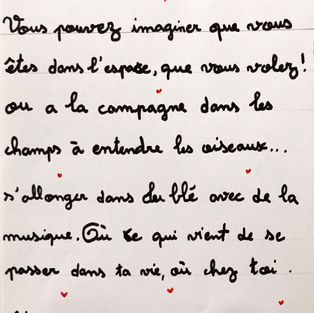 Vous pouvez imaginer que vous
êtes dans l'espace, que vous volez!
ou a la campagne dans les
champs à entendre les oiseaux...
s'allonger dans du blé avec de la
musique. Où ce qui vient de se
passer dans ta vie, où chez toi.